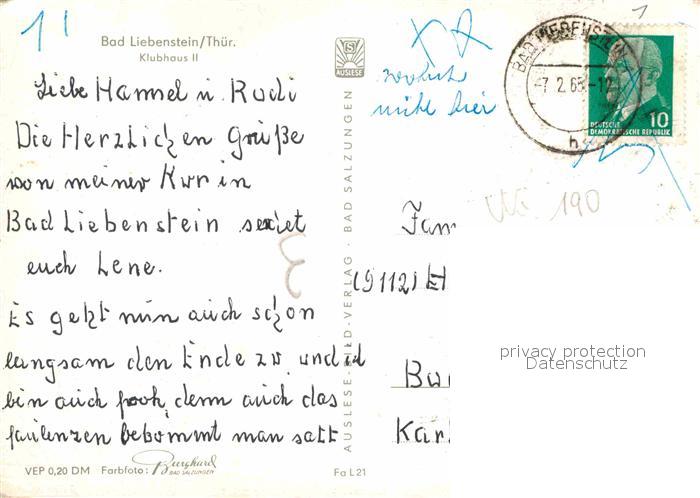 Bad Liebenstein/Thür.
Klubhaus II
Liebe Hannel u. Rudi
Die Herzlichen Grüße
von meiner Kur in
Bad Liebenstein sendet
euch Lene.
Es geht nun auch schon
langsam den Ende zu und
bin auch froh, denn auch das
faulenzen bekommt man satt
VEP 0,20 DM Farbfoto: Burghard
BAD SALZUNGEN
Fa L 21
AUSLESE-BILD-VERLAG · BAD SALZUNGEN
AUSLESE
wohnt
nicht hier
BAD LIEBENSTEIN
-7.2.68.-12
h
10
DEUTSCHE
DEMOKRATISCHE REPUBLIK
190
Fam
(9112)
Kar
privacy protection
Datenschutz